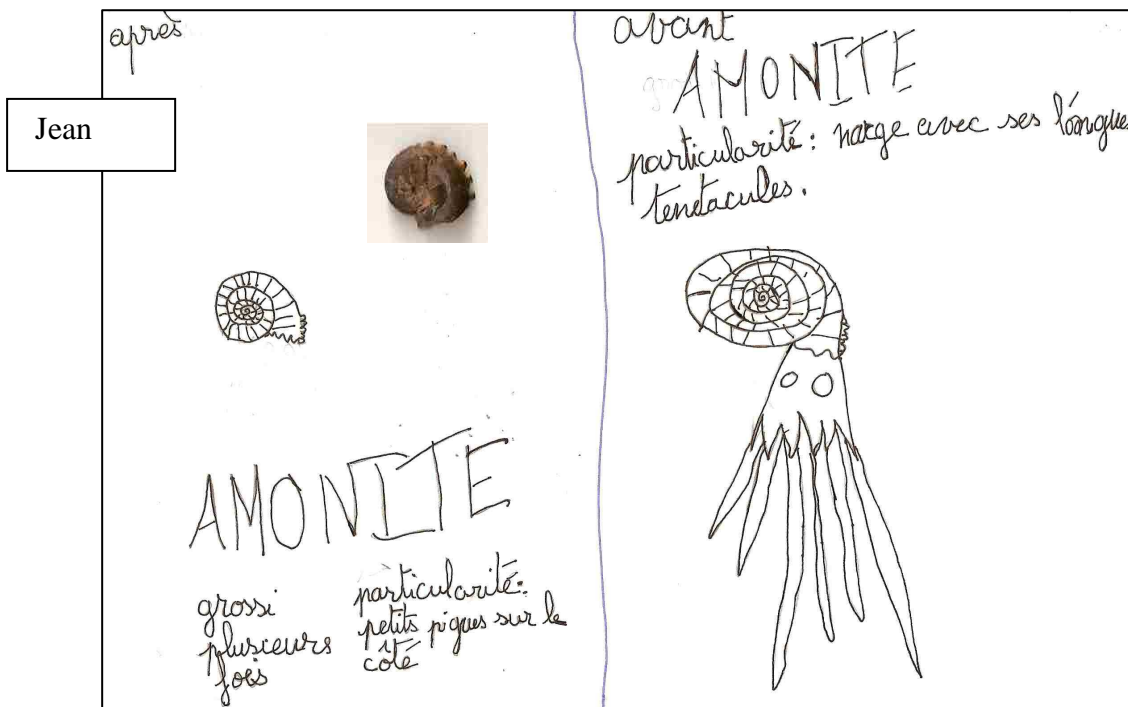 après
Jean
AMONITE
grossi
plusieurs
fois
particularité:
petits piques sur le
côté
avant
AMONITE
particularité: nage avec ses longues
tenetacules.